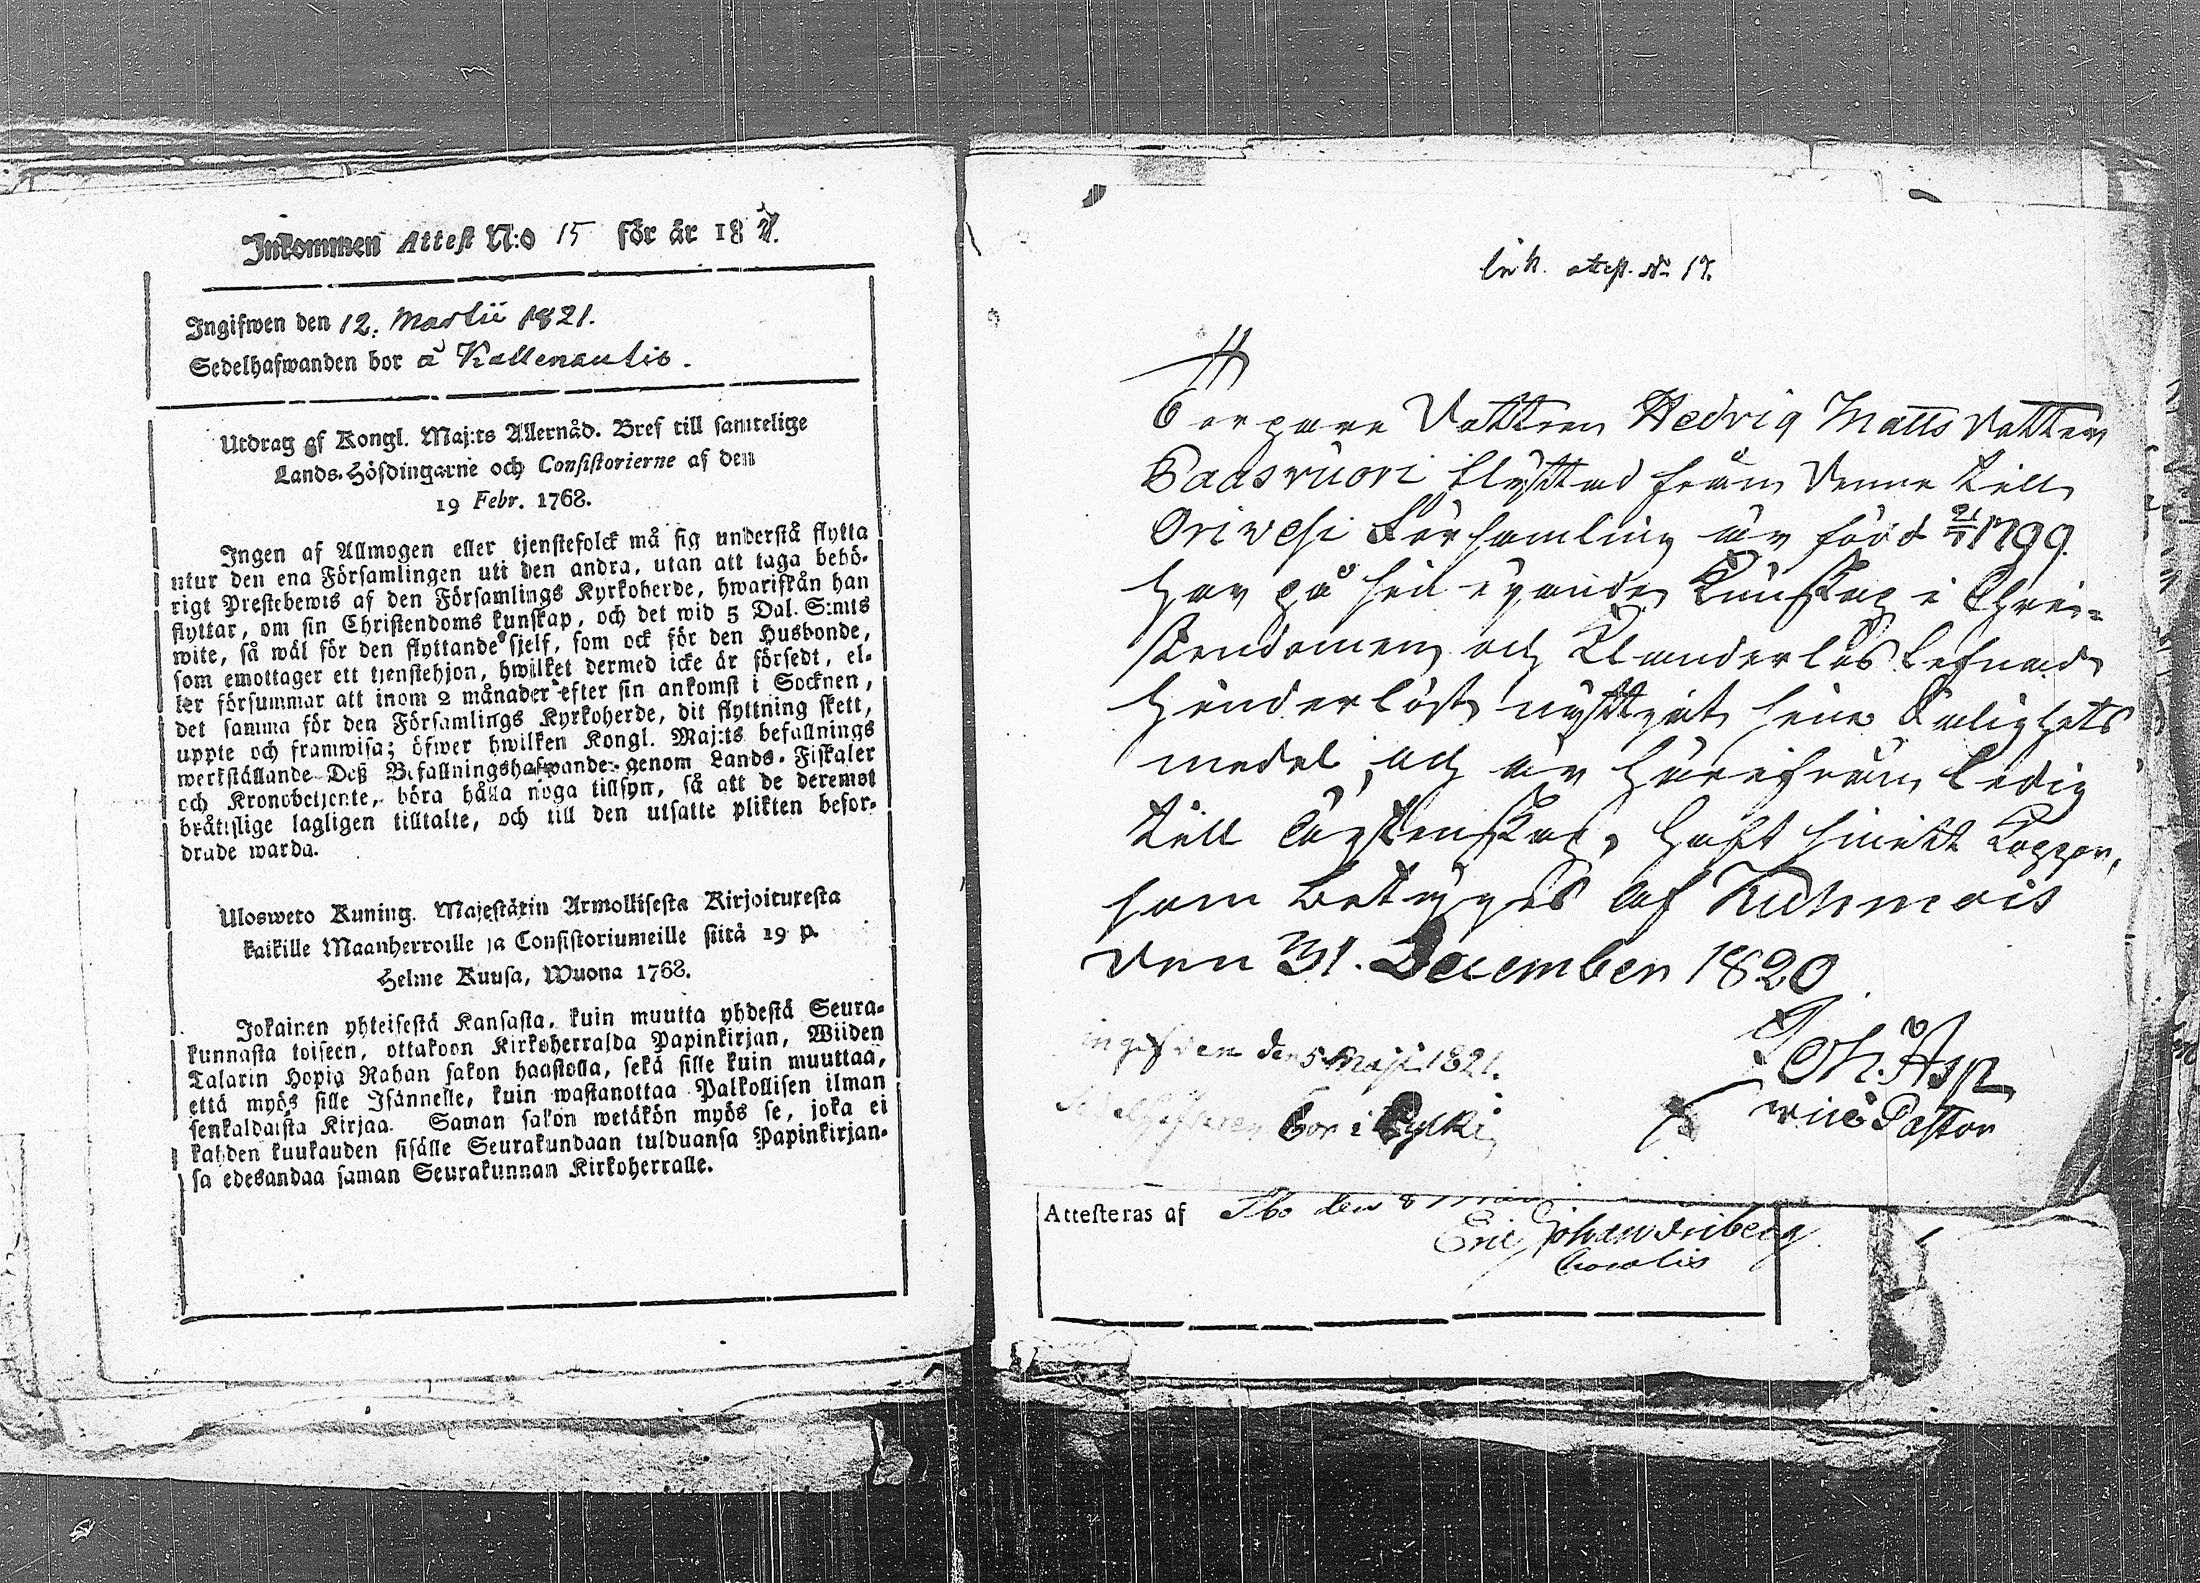 Inkommen Attest N:o 15 för år 1821.
Ingifwen den 12. Martii 1821.
Sedelhafwanden bor å Kallenautio.
Utdrag af Kongl. Maj:ts Allernåd. Bref till samtelige
Lands-Höfdingarne och Consistorierne af den
19 Febr. 1768.
Ingen af Allmogen eller tjenstefolck må sig understå flytta
utur den ena Församlingen uti den andra, utan att taga behö-
rigt Prestebewis af den Församlings Kyrkoherde, hwarifrån han
flyttar, om sin Christendoms kunskap, och det wid 5 Dal. S:mts
wite, så wäl för den flyttande sjelf, som ock för den Husbonde,
som emottager ett tjenstehjon, hwilket dermed icke är försedt, el-
ler försummar att inom 2 månader efter sin ankomst i Socknen,
det samma för den Församlings Kyrkoherde, dit flyttning skett,
uppte och framwisa; öfwer hwilken Kongl. Maj:ts befallnings
werkställande Deß Befallningshafwande genom Lands-Fiskaler
och Kronobetjente, böra hålla noga tillsyn, så att de deremot
bråttslige lagligen tilltalte, och till den utsatte plikten befor-
drade warda.
Ulosweto Kuning. Majestätin Armollisesta Kirjoituxesta
kaikille Maanherroille ja Consistoriumeille siitä 19 p.
Helme Kuusa, Wuona 1768.
Jokainen yhteisestä Kansasta, kuin muutta yhdestä Seura-
kunnasta toiseen, ottakoon Kirkoherralda Papinkirjan, Wiiden
Talarin Hopia Rahan sakon haastolla, sekä sille kuin muuttaa,
että myös sille Isännelle, kuin wastanottaa Palkollisen ilman
senkaldaista Kirjaa. Saman sakon wetäkön myös se, joka ei
kahden kuukauden sisälle Seurakundaan tulduansa Papinkirjan-
sa edesandaa saman Seurakunnan Kirkoherralle.
Ink. attest. No 17.
Torpare Dottren Hedvig Matts Dotter
Paasvuori flyttad från denne till
Orivesi Församling är född 21/7 1799.
har på sin egande Kunskap i Chri-
stendomen och Klanderlös lefnad
hinderlöst nyttjat sine Salighets
medel, och är härifrån ledig
till Ägtenskap, haft smitt Koppor,
som betyges af Kuhmois
den 31. December 1820
Joh. Asp
vice Pastor
ingifven den 5 Maji 1821.
bor i
Attesteras af den 8
Eric Johan